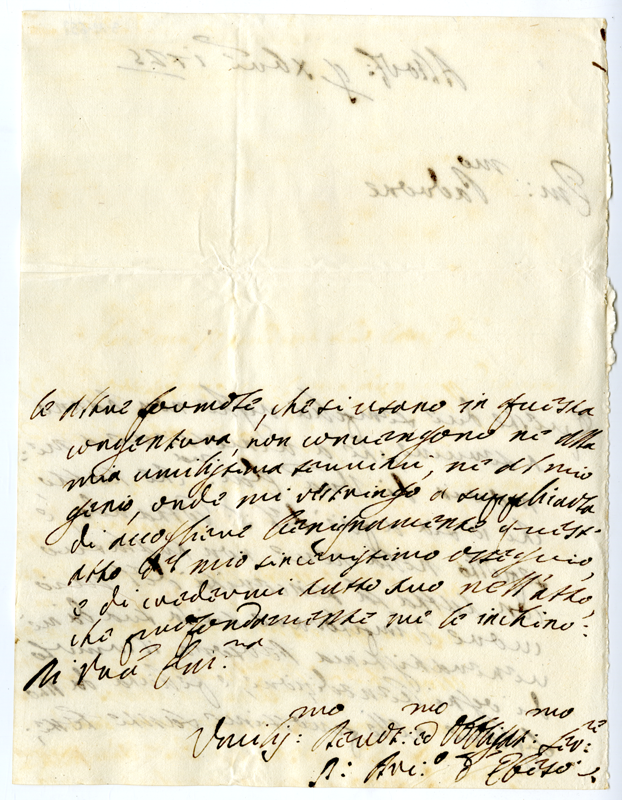 le altre formole, che si usano in questa
congentura, non convengono nè alla
mia umilissima servitù, nè al mio
genio, onde mi restringo a supplicarla
di accogliere benignamente quest'
atto del mio sincerissimo ossequio,
e di credermi tutto suo nell'atto,
che profondamente me le inchino.
Di Vra Em.
Umilis: mo Devot: mo ed Obbligat: mo Ser: re